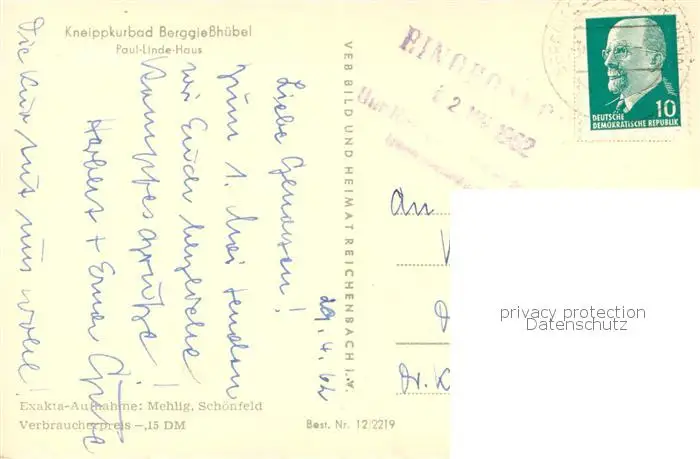 Kneippkurbad Berggießhübel
Paul-Linde-Haus
29. 4. 62
Liebe Genossen!
Zum 1. Mai senden
wir Euch herzliche
Kampfesgrüße!
Herbert + Erna
Die Kur tut uns wohl!
Exakta-Aufnahme: Mehlig, Schönfeld
Verbraucherpreis -,15 DM
VEB BILD UND HEIMAT REICHENBACH i.V.
Best. Nr. 12/2219
EINGEGANGEN
2 1962
10
DEUTSCHE
DEMOKRATISCHE REPUBLIK
An
Dr. K
privacy protection
Datenschutz